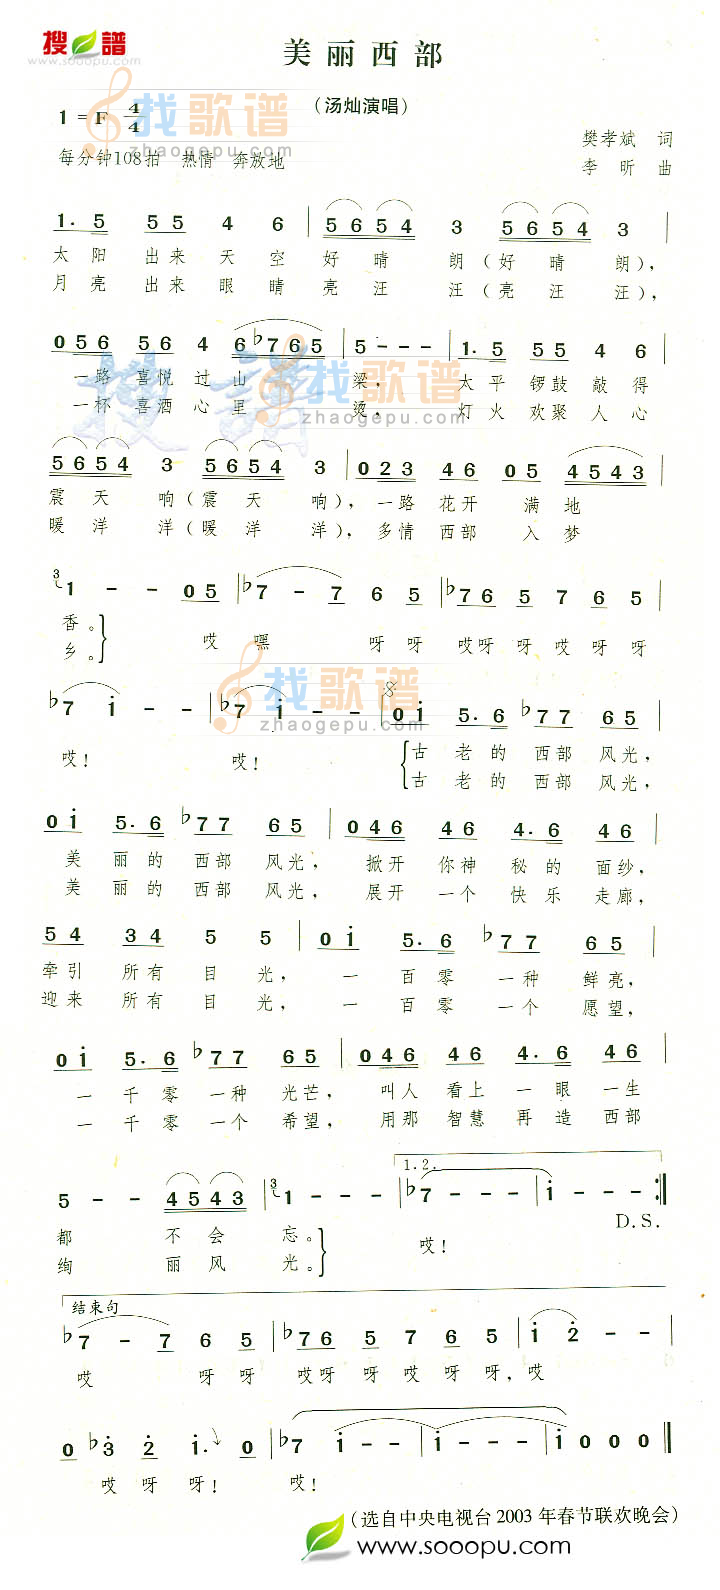 搜谱
www.sooopu.com
美丽西部
找歌谱
zhaogepu.com
（汤灿演唱）
1 = F 4/4
樊孝斌 词
每分钟108拍 热情 奔放地
李昕 曲
1. 5 5 5 4 6 | 5 6 5 4 3 5 6 5 4 3 |
太阳 出来 天空 好晴 朗（好晴 朗），
月亮 出来 眼睛 亮汪 汪（亮汪 汪），
0 5 6 5 6 4 6 ♭7 6 5 | 5 - - - | 1. 5 5 5 4 6 |
一路 喜悦 过山 梁， 太平 锣鼓 敲得
一杯 喜酒 心里 烫， 灯火 欢聚 人心
搜谱
找歌谱
zhaogepu.com
5 6 5 4 3 5 6 5 4 3 | 0 2 3 4 6 0 5 4 5 4 3 |
震天 响（震天 响），一路 花开 满地
暖洋 洋（暖洋 洋），多情 西部 入梦
3 1 - - 0 5 | ♭7 - 7 6 5 | ♭7 6 5 7 6 5 |
香。 哎 嘿 呀呀 哎呀 呀 哎呀 呀
乡。
找歌谱
zhaogepu.com
♭7 i - - | ♭7 i - - | 0 i 5. 6 ♭7 7 6 5 |
哎！ 哎！ 古 老的 西部 风光，
古 老的 西部 风光，
0 i 5. 6 ♭7 7 6 5 | 0 4 6 4 6 4. 6 4 6 |
美 丽的 西部 风光， 掀开 你神 秘的 面纱，
美 丽的 西部 风光， 展开 一个 快乐 走廊，
5 4 3 4 5 5 | 0 i 5. 6 ♭7 7 6 5 |
牵引 所有 目 光， 一 百零 一种 鲜亮，
迎来 所有 目 光， 一 百零 一个 愿望，
0 i 5. 6 ♭7 7 6 5 | 0 4 6 4 6 4. 6 4 6 |
一 千零 一种 光芒， 叫人 看上 一眼 一生
一 千零 一个 希望， 用那 智慧 再造 西部
1. 2.
5 - - 4 5 4 3 | 3 1 - - - | ♭7 - - - | i - - - :||
D.S.
都 不会 忘。 哎！
绚 丽风 光。
结束句
♭7 - 7 6 5 | ♭7 6 5 7 6 5 | i 2 - - |
哎 呀呀 哎呀 呀 哎呀 呀，哎
0 ♭3 2 i. 0 | ♭7 i - - | i - - - | i 0 0 0 ||
哎 呀 呀！ 哎！
（选自中央电视台2003年春节联欢晚会）
www.sooopu.com